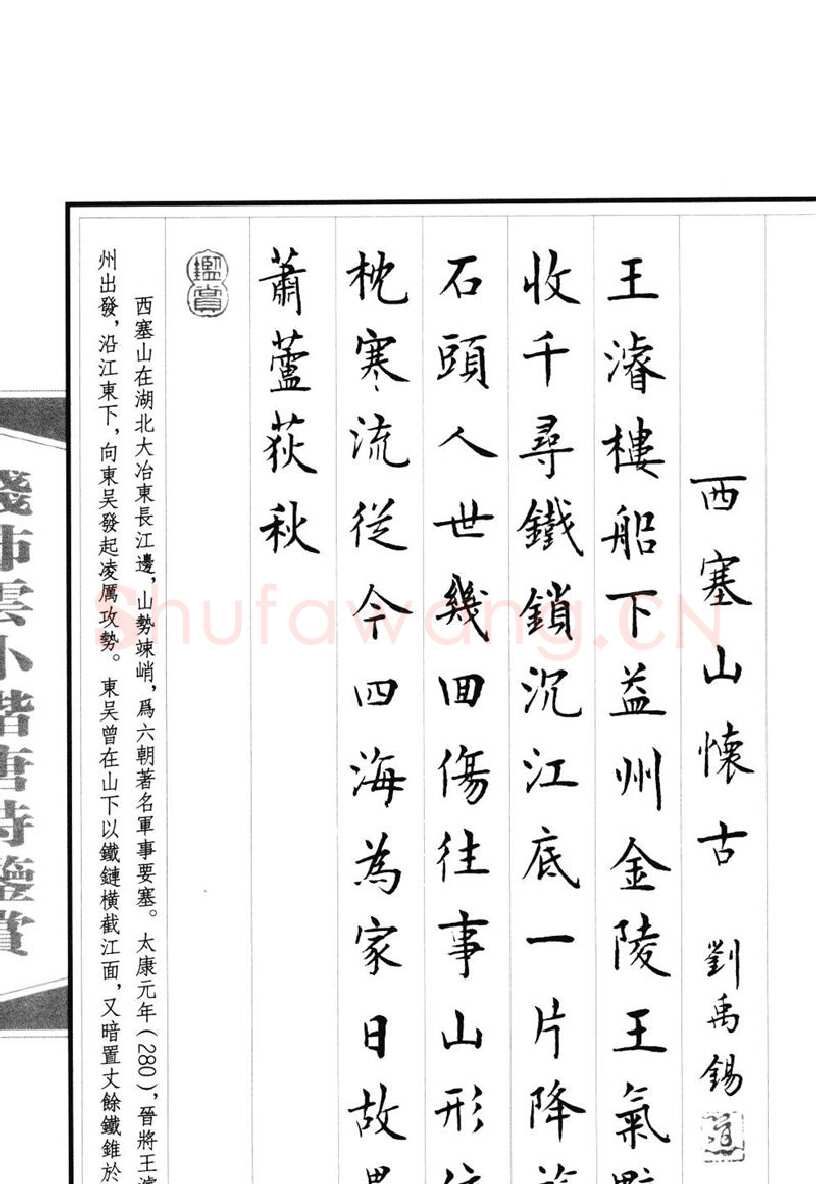 西塞山懷古 劉禹錫
王濬樓船下益州金陵王氣
收千尋鐵鎖沉江底一片降
石頭人世幾回傷往事山形
枕寒流從今四海為家日故
蕭蘆荻秋
鑑賞
西塞山在湖北大冶東長江邊，山勢竦峭，爲六朝著名軍事要塞。太康元年（280），晉將王濬
州出發，沿江東下，向東吴發起凌厲攻勢。東吴曾在山下以鐵鏈橫截江面，又暗置丈餘鐵錐於
小楷唐詩鑒賞
Shufawang.CN